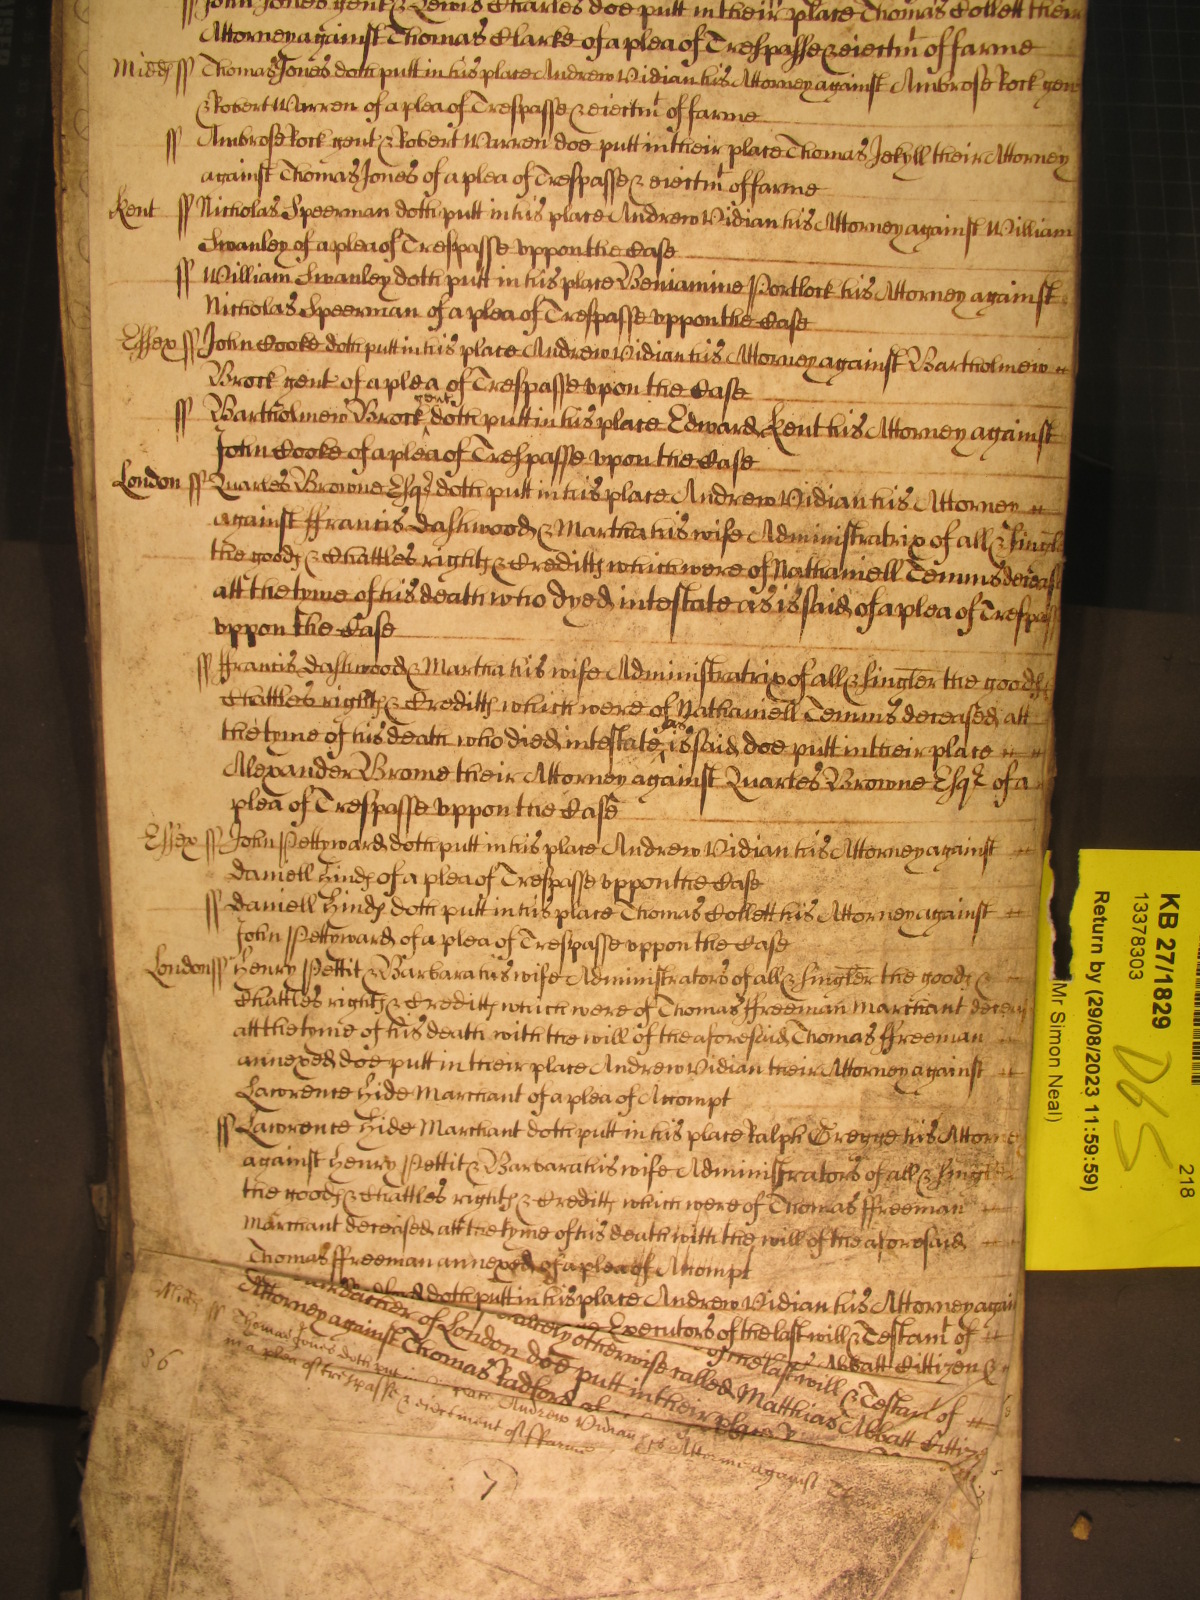 ſſ John Jones gent & Lewis Charles doe putt in their place Thomas Collett their
Attorney against Thomas Clarke of a plea of Trespasse & eiectmt of farme
Midd ſſ Thomas Jones doth putt in his place Andrew Vidian his Attorney against Ambrose Rock gen
& Robert Warren of a plea of Trespasse & eiectmt of farme
ſſ Ambrose Rock gent & Robert Warren doe putt in their place Thomas Jekyll their Attorney
against Thomas Jones of a plea of Trespasse & eiectmt of farme
Kent ſſ Nicholas Speerman doth putt in his place Andrew Vidian his Attorney against William
Swanley of a plea of Trespasse vppon the Case
ſſ William Swanley doth putt in his place Beniamine Portlock his Attorney against
Nicholas Speerman of a plea of Trespasse vppon the Case
Essex ſſ John Cooke doth putt in his place Andrew Vidian his Attorney against Bartholmew
Brock gent of a plea of Trespasse vpon the Case
ſſ Bartholmew Brock gent doth putt in his place Edward Kent his Attorney against
John Cooke of a plea of Trespasse vpon the Case
London ſſ Quarles Browne Esqr doth putt in his place Andrew Vidian his Attorney
against ffrancis Dashwood & Martha his wife Administratrix of all & singler
the goods & Chattles rights & Creditts which were of Nathaniell Temms deceas
att the tyme of his death who dyed intestate as is said of a plea of Trespas
vppon the Case
ſſ ffrancis Dashwood & Martha his wife Administratrix of all & singler the goods
Chattles rights & Creditts which were of Nathaniell Temms deceased att
the tyme of his death who died intestate as is said doe putt in their place
Alexander Brome their Attorney against Quarles Browne Esqr of a
plea of Trespasse vppon the Case
Essex ſſ John Pettyward doth putt in his place Andrew Vidian his Attorney against
Daniell Hinds of a plea of Trespasse vppon the Case
ſſ Daniell Hinds doth putt in his place Thomas Collett his Attorney against
John Pettyward of a plea of Trespasse vppon the Case
London ſſ Henry Pettit & Barbara his wife Administrators of all & singler the goods &
Chattles rights & Creditts which were of Thomas ffreeman Marchant deceas
att the tyme of his death with the will of the aforesaid Thomas ffreeman
annexed doe putt in their place Andrew Vidian their Attorney against
Lawrence Hide Marchant of a plea of Accompt
ſſ Lawrence Hide Marchant doth putt in his place Ralph Gregge his Attorne
against Henry Pettit & Barbara his wife Administrators of all & singler
the goods & Chattles rights & Creditts which were of Thomas ffreeman
Marchant deceased att the tyme of his death with the will of the aforesaid
Thomas ffreeman annexed of a plea of Accompt
doth putt in his place Andrew Vidian his Attorney again
Executors of the last will & Testamt of
Abbatt Cittizen &
of the last will & Testamt of
otherwise called Matthias Abbatt Cittiz
of London doe putt in their place
Attorney against Thomas Radford
Midd ſſ Thomas Jones doth put in his place Andrew Vidian his Attorne against
in a plea of trespasse & eiectment of ffarme
86
7
KB 27/1829
13378303
Return by (29/08/2023 11:59:59)
Mr Simon Neal)
D65
218